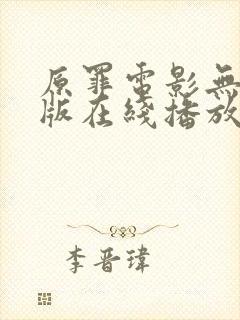 原罪電影無
版在綫播放
李晋瑋